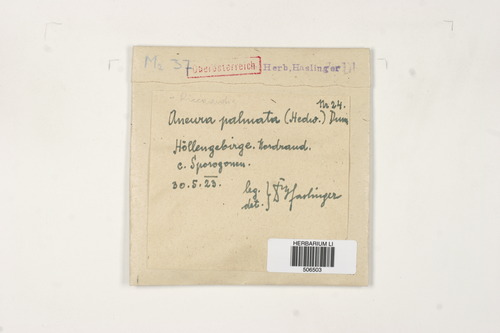 M2 37 Oberösterreich Herb. Haslinger
Riccardia
Nr 24.
Aneura palmata (Hedw.) Dum
Höllengebirge. Nordrand.
c. Sporogonen.
30.5.23. leg. } Haslinger
det.
HERBARIUM LI
506503